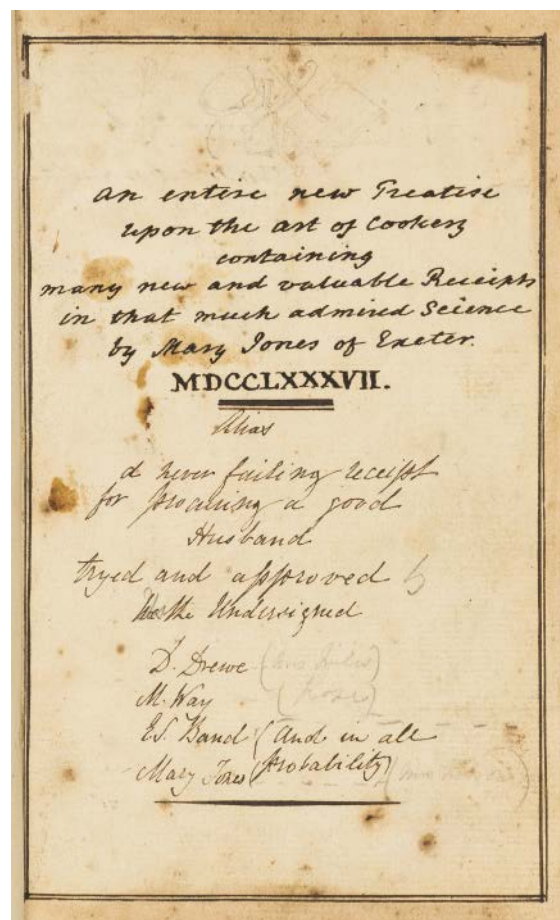 An entire new Treatise
upon the art of Cookery
containing
many new and valuable Receipts
in that much admired Science
by Mary Jones of Exeter.
MDCCLXXXVII.
Alias
a never failing receipt
for procuring a good
Husband
tryed and approved by
We the Undersigned
D. Drewe
M. Way
E.S. Band (And in all
Mary Jones probability)